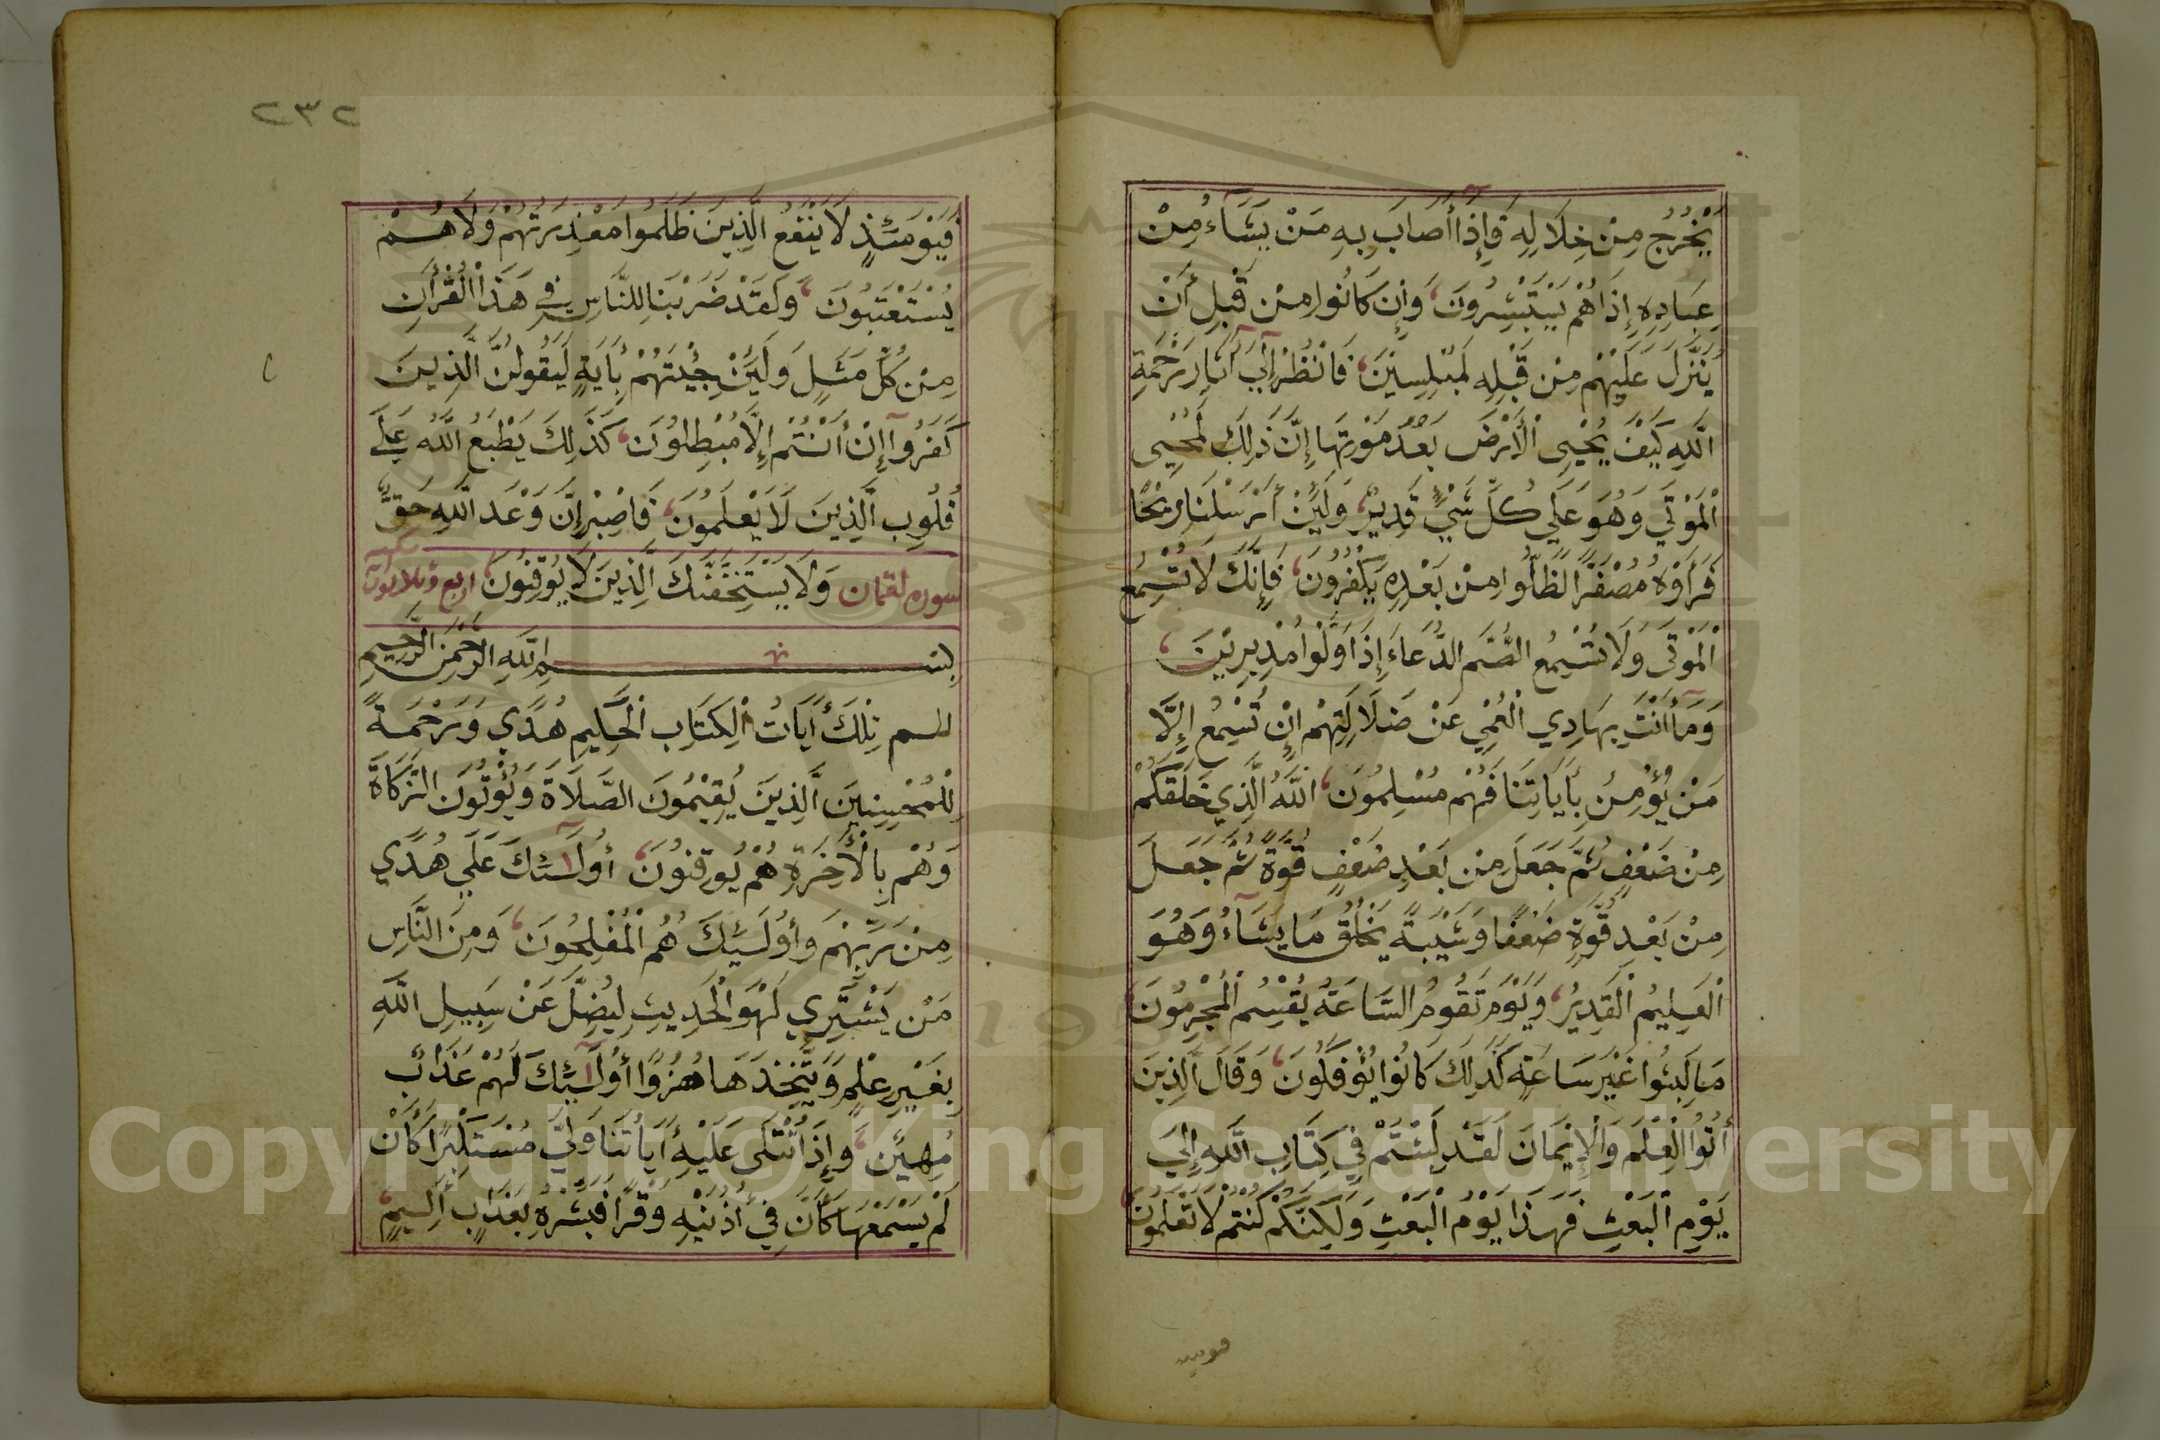 يَخْرُجُ مِنْ خِلَالِهِ فَإِذَا أَصَابَ بِهِ مَنْ يَشَآءُ مِنْ
عِبَادِهِ إِذَا هُمْ يَسْتَبْشِرُونَ وَإِن كَانُوا مِنْ قَبْلِ أَنْ
يُنَزَّلَ عَلَيْهِمْ مِنْ قَبْلِهِ لَمُبْلِسِينَ فَانْظُرْ إِلَيٓ آثَارِ رَحْمَةِ
اللَّهِ كَيْفَ يُحْيِي الْأَرْضَ بَعْدَ مَوْتِهَا إِنَّ ذَلِكَ لَمُحْيِي
الْمَوْتَي وَهُوَ عَلَي كُلِّ شَيْءٍ قَدِيرٌ وَلَئِنْ أَرْسَلْنَا رِيْحًا
فَرَأَوْهُ مُصْفَرًّا لَظَلُّوا مِنْ بَعْدِهِ يَكْفُرُونَ فَإِنَّكَ لَا تُسْمِعُ
الْمَوْتَى وَلَا تُسْمِعُ الصُّمَّ الدُّعَاءَ إِذَا وَلَّوْا مُدْبِرِيْنَ
وَمَآ أَنْتَ بِهَادِي الْعُمْيِ عَنْ ضَلَالَتِهِمْ إِنْ تُسْمِعُ إِلَّا
مَنْ يُؤْمِنُ بِأَيَاتِنَا فَهُمْ مُسْلِمُونَ اللَّهُ الَّذِي خَلَقَكُمْ
مِنْ ضَعْفٍ ثُمَّ جَعَلَ مِنْ بَعْدِ ضَعْفٍ قُوَّةً ثُمَّ جَعَلَ
مِنْ بَعْدِ قُوَّةٍ ضَعْفًا وَشَيْبَةً يَخْلُقُ مَا يَشَآءُ وَهُوَ
الْعَلِيمُ الْقَدِيرُ وَيَوْمَ تَقُومُ السَّاعَةُ يُقْسِمُ الْمُجْرِمُونَ
مَا لَبِثُوا غَيْرَ سَاعَةٍ كَذَلِكَ كَانُوا يُؤْفَكُونَ وَقَالَ الَّذِينَ
أُتُوا الْعِلْمَ وَالْإِيْمَانَ لَقَدْ لَبِثْتُمْ فِي كِتَابِ اللَّهِ إِلَيَ
يَوْمِ الْبَعْثِ فَهَذَا يَوْمُ الْبَعْثِ وَلَكِنَّكُمْ كُنْتُمْ لَا تَعْلَمُونَ
فيوميذ
٢٣٢
فَيَوْمَئِذٍ لَا يَنْفَعُ الَّذِينَ ظَلَمُوا مَعْذِرَتُهُمْ وَلَا هُمْ
يُسْتَعْتَبُونَ وَلَقَدْ ضَرَبْنَا لِلنَّاسِ فِي هَذَا الْقُرْأَنِ
مِنْ كُلِّ مَثَلٍ وَلَئِنْ جِئْتَهُمْ بِأَيَةٍ لَيَقُولَنَّ الَّذِينَ
كَفَرُوآ إِنْ أَنْتُمْ إِلَّا مُبْطِلُونَ كَذَلِكَ يَطْبَعُ اللَّهُ عَلَي
قُلُوبِ الَّذِينَ لَا يَعْلَمُونَ فَاصْبِرْ إِنَّ وَعْدَ اللَّهِ حَقٌّ
سورة لقمان وَلَا يَسْتَخِفَّنَّكَ الَّذِينَ لَا يُوْقِنُونَ اربع وثلاثون
بِسْمِ اللَّهِ الرَّحْمَنِ الرَّحِيمِ
الم تِلْكَ أَيَاتُ الْكِتَابِ الْحَكِيمِ هُدًي وَرَحْمَةً
لِلْمُحْسِنِينَ الَّذِينَ يُقِيْمُونَ الصَّلَاةَ وَيُؤْتُونَ الزَّكَاةَ
وَهُمْ بِالْأَخِرَةِ هُمْ يُوقِنُونَ أُولَآئِكَ عَلَي هُدًي
مِنْ رَبِّهِمْ وَأُولَئِكَ هُمُ الْمُفْلِحُونَ وَمِنَ النَّاسِ
مَنْ يَشْتَرِي لَهْوَ الْحَدِيثِ لِيُضِلَّ عَنْ سَبِيلِ اللَّهِ
بِغَيْرِ عِلْمٍ وَيَتَّخِذَهَا هُزُوًا أُولَآئِكَ لَهُمْ عَذَابٌ
مُهِيْنٌ وَإِذَا تُتْلَى عَلَيْهِ أَيَاتُنَا وَلَّي مُسْتَكْبِرًا كَأَنْ
لَمْ يَسْمَعْهَا كَأَنَّ فِيٓ أُذُنَيْهِ وَقْرًا فَبَشِّرْهُ بِعَذَابٍ أَلِيمٍ
Copyright © King Saud University